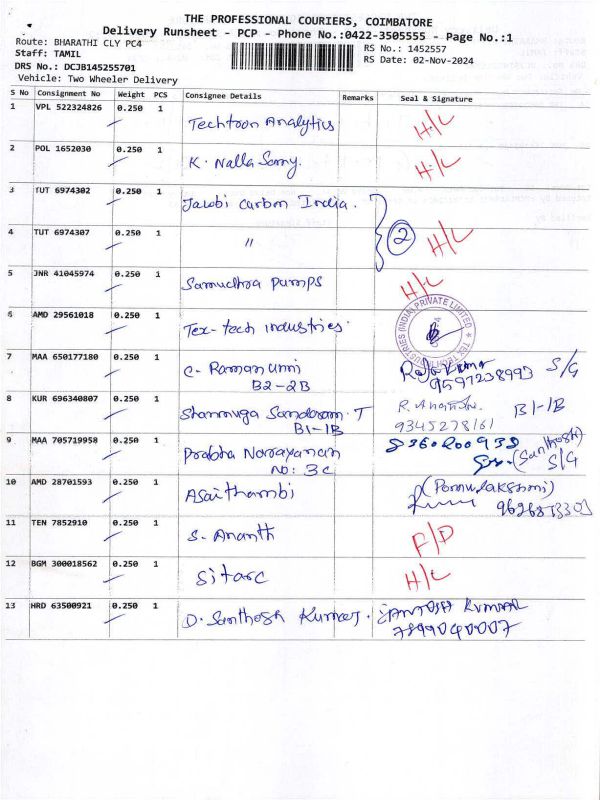 THE PROFESSIONAL COURIERS, COIMBATORE
Delivery Runsheet - PCP - Phone No.:0422-3505555 - Page No.:1
Route: BHARATHI CLY PC4
Staff: TAMIL
RS No.: 1452557
RS Date: 02-Nov-2024
DRS No.: DCJB145255701
Vehicle: Two Wheeler Delivery
S No Consignment No Weight PCS Consignee Details Remarks Seal & Signature
1 VPL 522324826 0.250 1 Techtoon Analytics H/L
2 POL 1652030 0.250 1 K. Nalla Samy. H/L
3 TUT 6974302 0.250 1 Jacobi carbon India.
4 TUT 6974307 0.250 1 " 2 H/L
5 JNR 41045974 0.250 1 Samudhra pumps H/L
6 AMD 29561018 0.250 1 Tex-tech industries
TEX TECH INDUSTRIES (INDIA) PRIVATE LIMITED
7 MAA 650177180 0.250 1 C. Ramanunni S/G
B2-2B
8 KUR 696340807 0.250 1 Shanmuga Sundaram. T B1-1B
B1-1B 9345278161
9 MAA 705719958 0.250 1 Prabha Narayanan (Santhosh)
NO: 3C S/G
10 AMD 28701593 0.250 1 Asaithambi
11 TEN 7852910 0.250 1 S. Ananth F/D
12 BGM 300018562 0.250 1 Sitarc H/L
13 HRD 63500921 0.250 1 D. Santhosh Kumar. SANTOSH KUMAR
7899040007